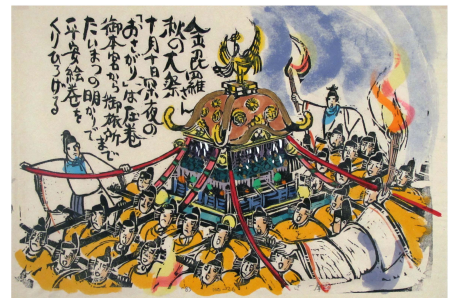 金毘羅さん
秋の大祭
十月十日の夜の
「おさがり」は圧巻
御本宮から御旅所まで
たいまつの明かりで
平安絵巻を
くりひろげる